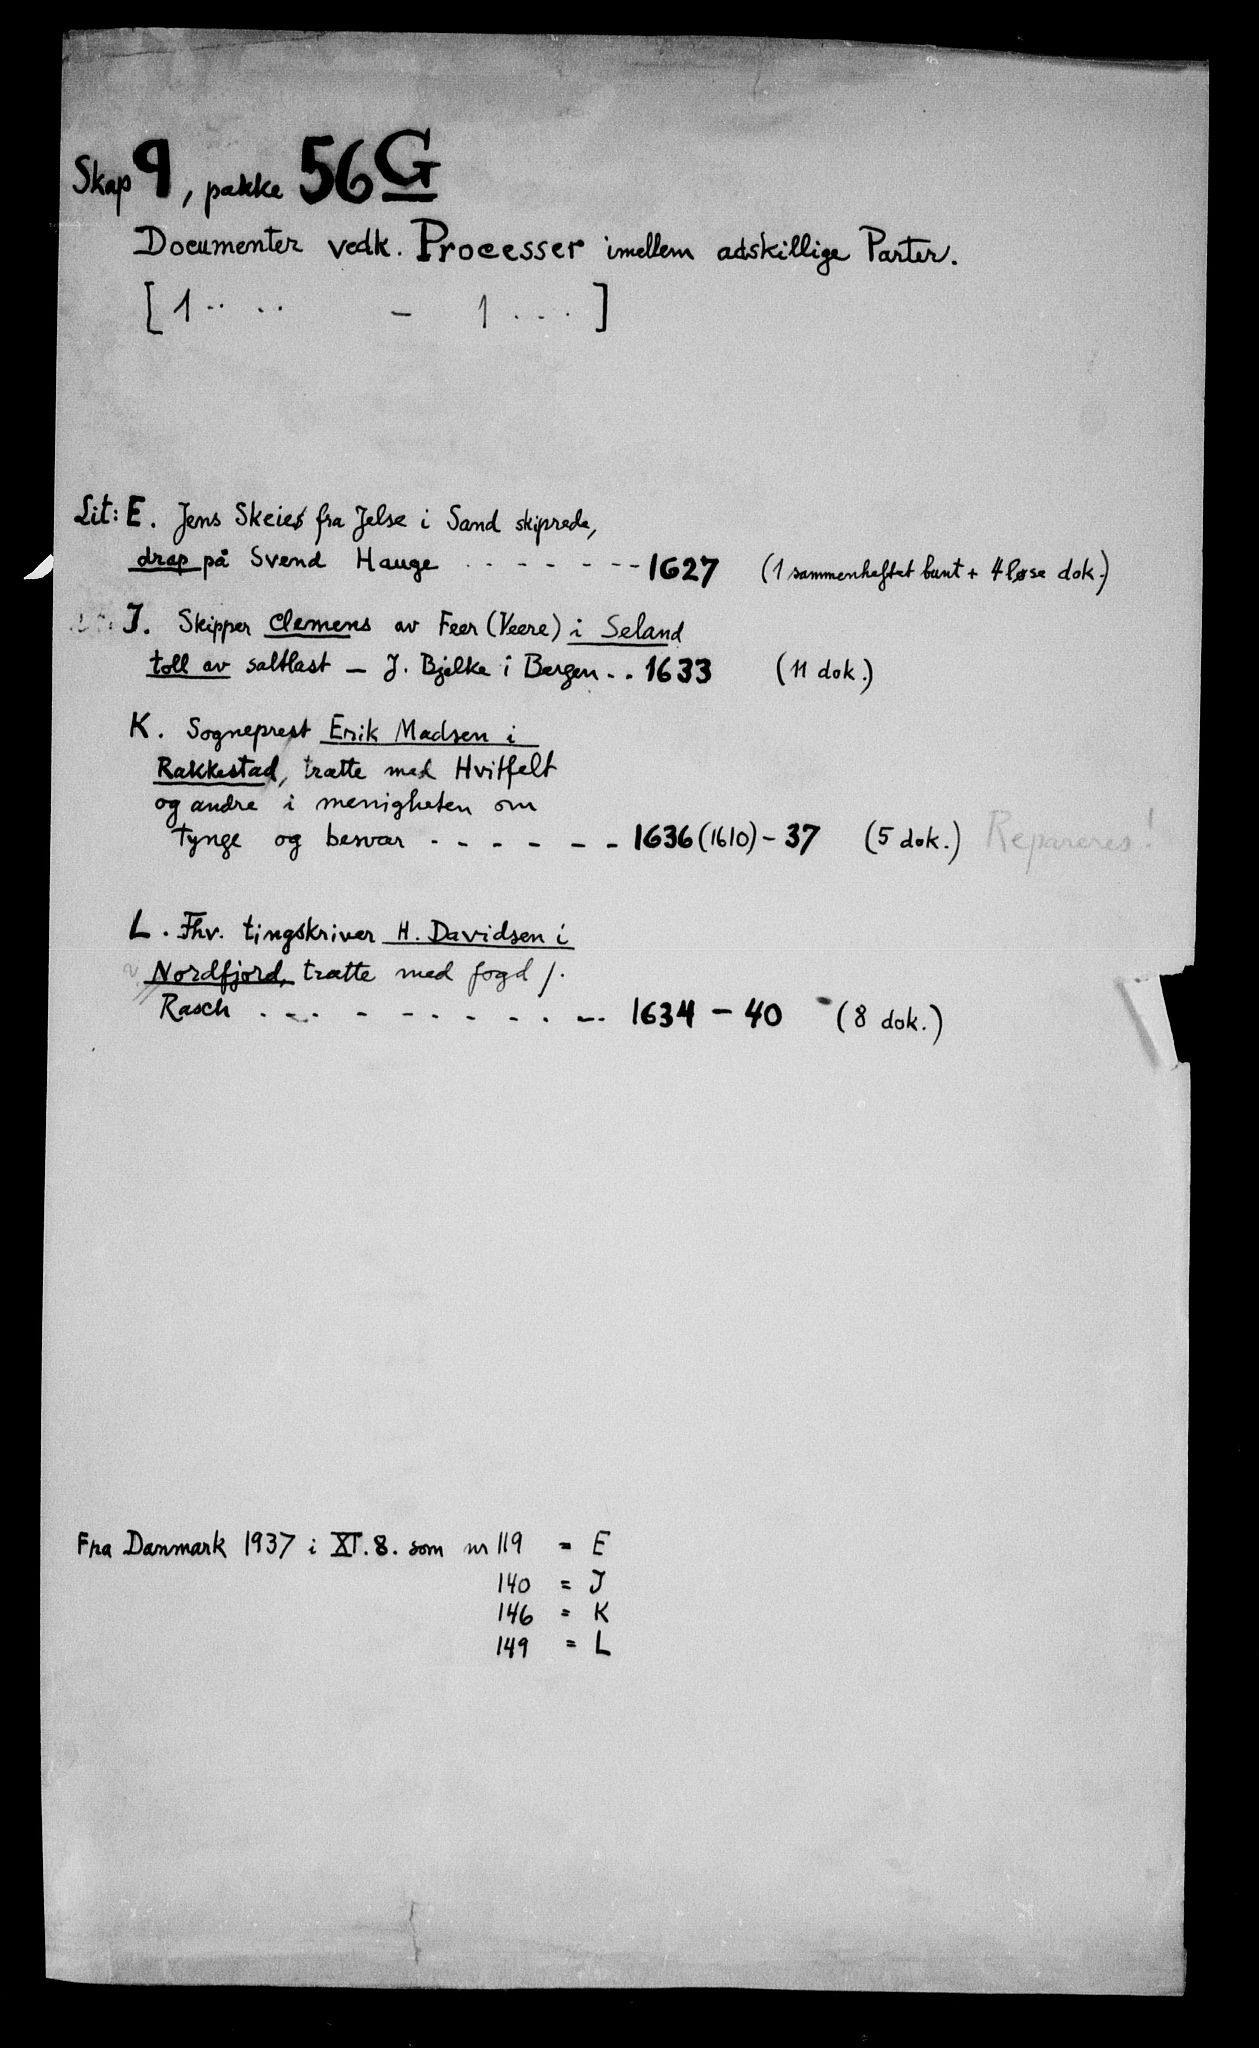 Skap 9, pakke 56 G
Documenter vedk. Processer imellem adskillige Parter.
[1 .. .. – 1 ... ]
Lit: E. Jens Skeies fra Jelse i Sand skiprede,
drap på Svend Hauge . . - - - - - 1627 (1 sammenheftet bunt + 4 løse dok.)
J. Skipper Clemens av Feer (Veere) i Seland
toll av saltlast – J. Bjelke i Bergen . . 1633 (11 dok.)
K. Sogneprest Erik Madsen i
Rakkestad, trætte med Hvitfelt
og andre i menigheten om
tynge og besvær . - - - - - - 1636 (1610) – 37 (5 dok.) Repareres!
L. Fhv. tingskriver H. Davidsen i
Nordfjord, trætte med fogd J.
Rasch . - . - - . - . . - . 1634 – 40 (8 dok.)
Fra Danmark 1937 i XI. 8. som nr 119 = E
140 = J
146 = K
149 = L